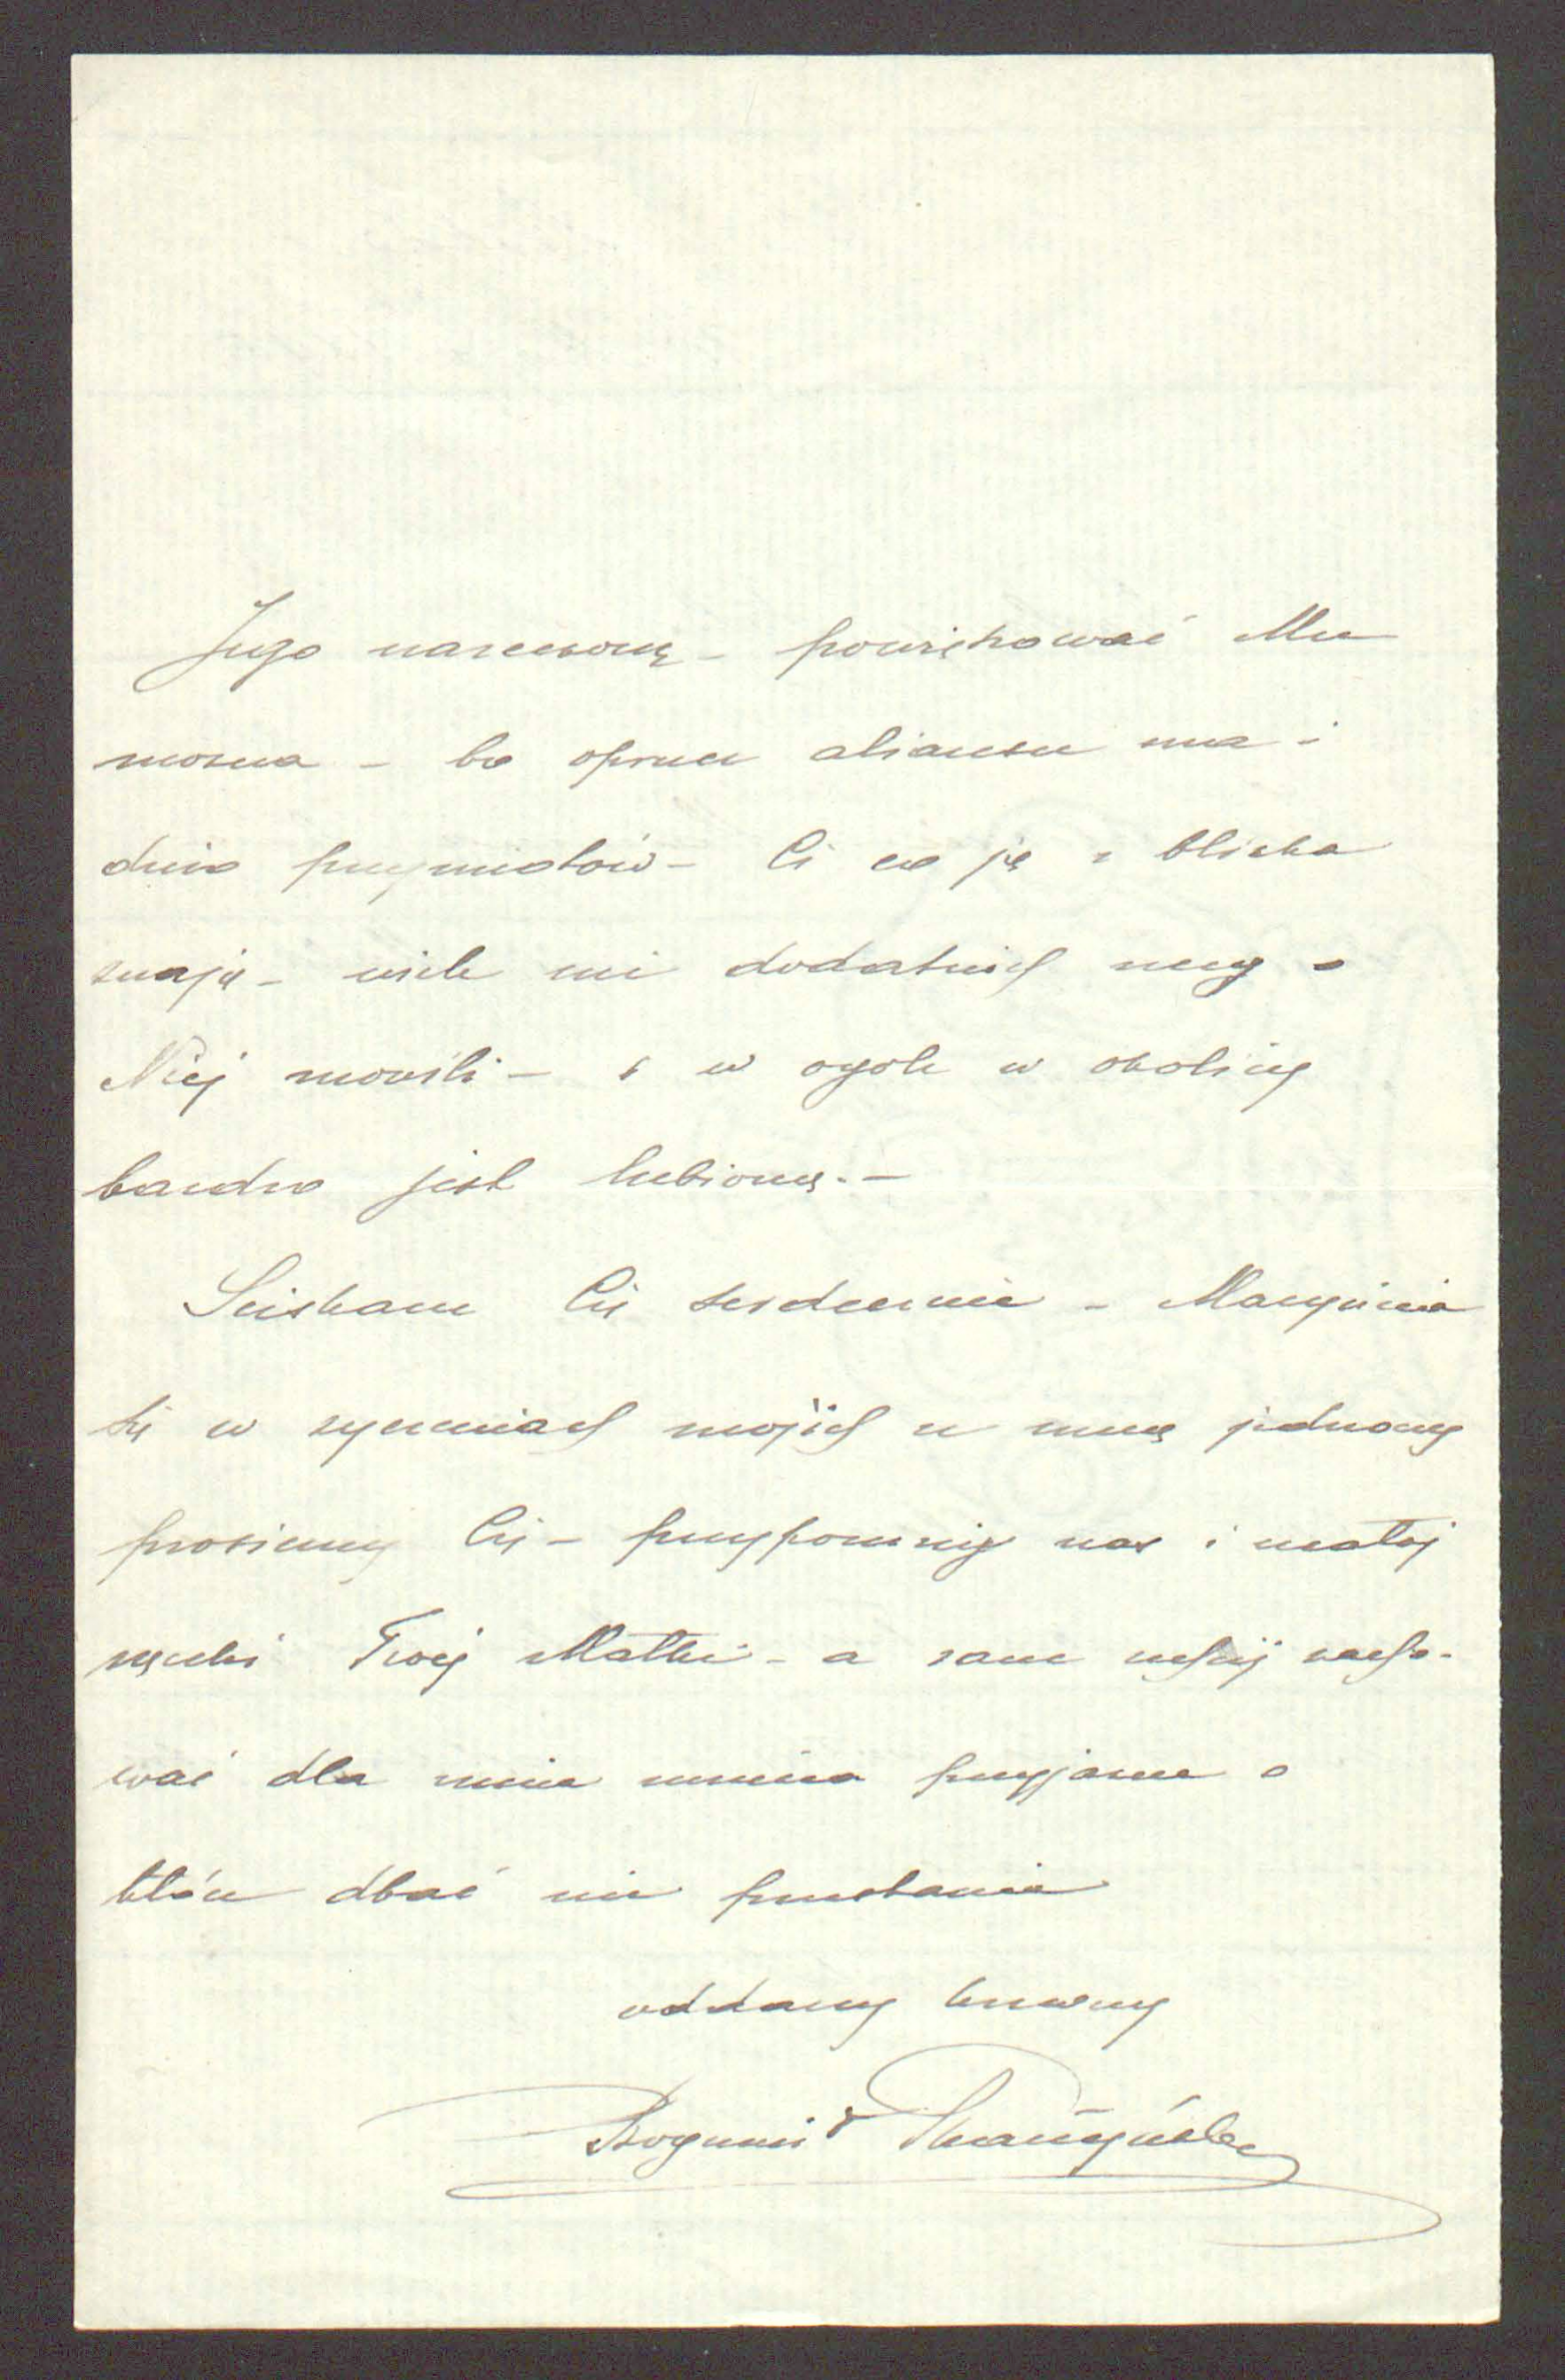 Jego narzeczoną – powinszować Mu
można – bo oprócz aliansu ma i
dużo przymiotów – Ci co ją z bliska
znają – wiele mi dodatnich rzeczy o
Niej mówili – i w ogóle w okolicy
bardzo jest lubioną. –
Ściskam Cię serdecznie – Marynia
się w życzeniach mojich ze mną jednoczy
prosimy Cię – przypomnij nas i ucałuj
rączki Twej Matki – a sam zacho-
wać dla mnie przyjaźń o
którą dbać nie przestanie
oddany krewny
Bogumił